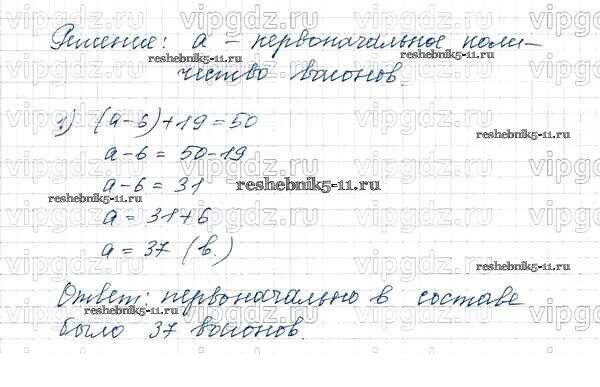 Решение: а – первоначальное коли-
чество вагонов.
1) (а-6)+19=50
а-6 = 50-19
а-6 = 31
а = 31+6
а = 37 (в.)
Ответ: первоначально в составе
было 37 вагонов.
vipgdz.ru
reshebnik5-11.ru